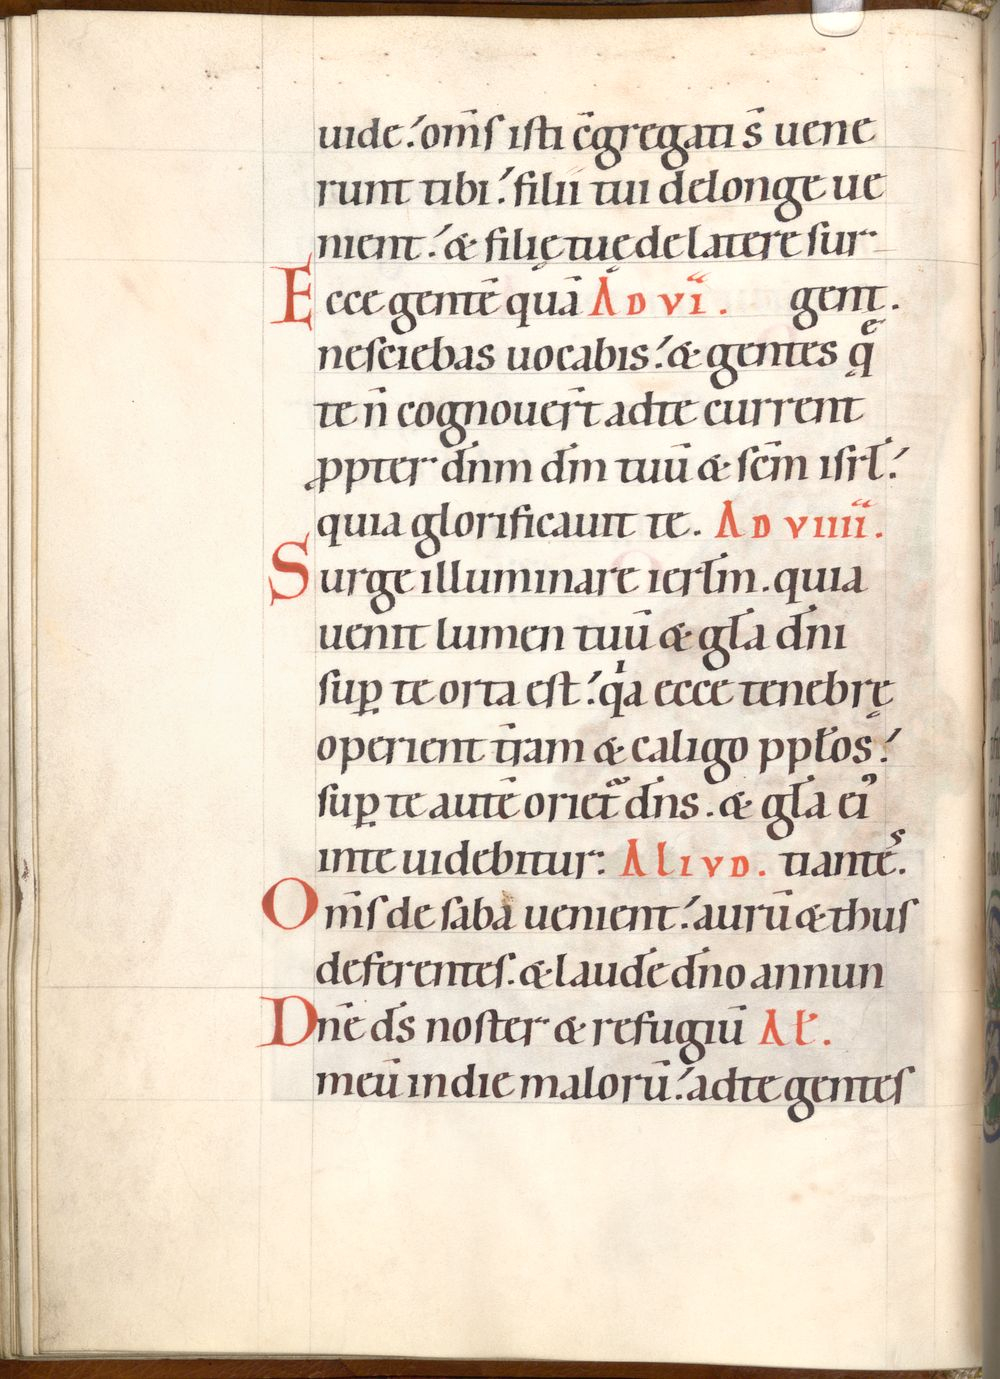 uide. om̄s isti c̄gregati s̄ uene
runt tibi. filii tui delonge ue
nient. & filię tuę de latere sur
Ecce gentē quā AD VI. gent.
nesciebas uocabis. & gentes q̨̄
te n̄ cognouer̄t adte current
ꝓpter dn̄m dm̄ tuū & scm̄ isrł.
quia glorificauit te. AD VIIII.
Surge illuminare ierłm. quia
uenit lumen tuū & gła dn̄i
suꝑ te orta est. qͥa ecce tenebrę
operient t̄ram & caligo ppłos.
suꝑ te autē oriet᷑ dn̄s. & gła ei᷒
inte uidebitur: ALIVD. tiantes.
Om̄s de saba uenient. aurū & thus
deferentes. & laudē dn̄o annun
Dn̄e ds̄ noster & refugiū Ał.
meū indie malorū. adte gentes